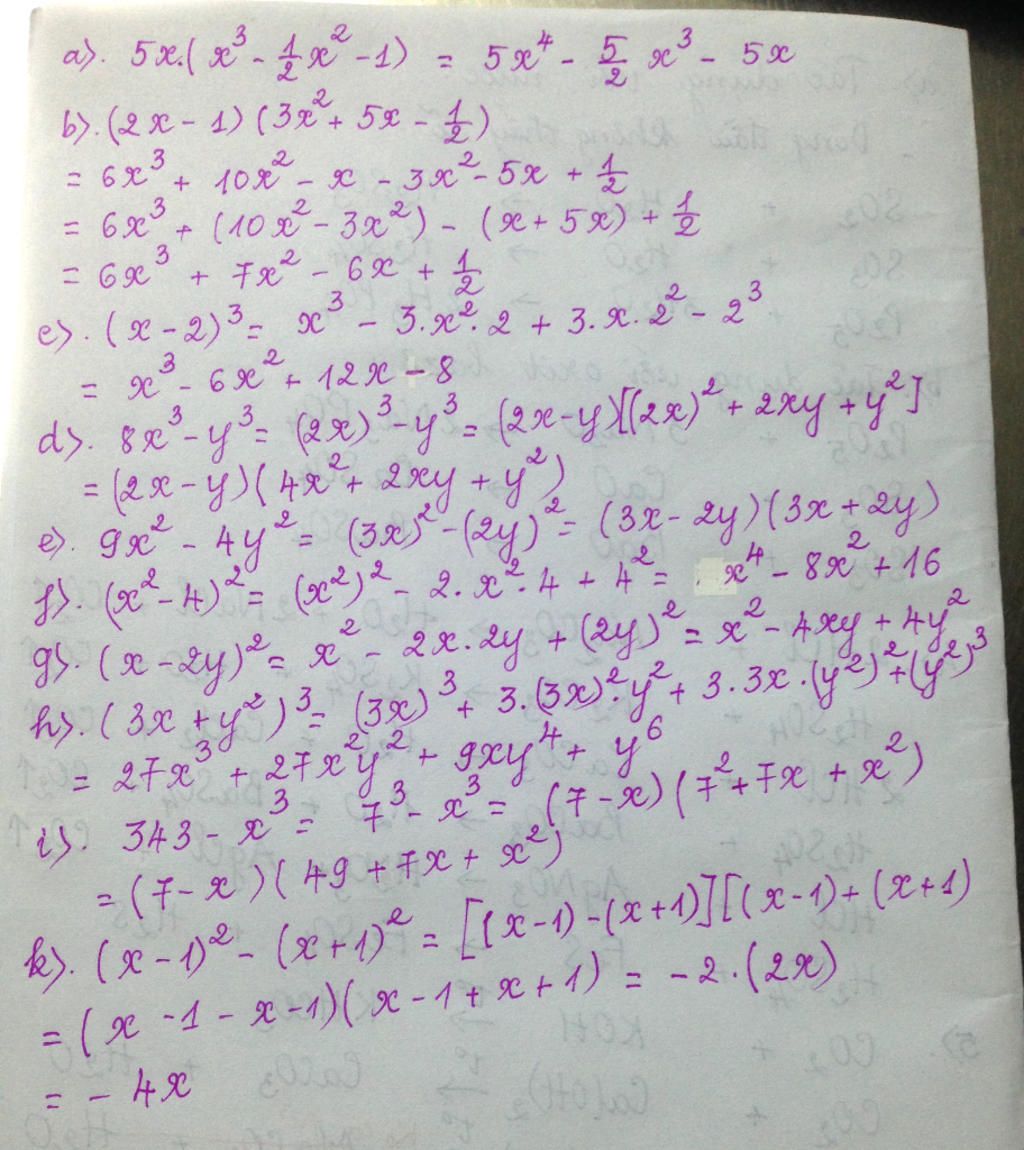 a). 5x.(x³ - 1/2 x² - 1) = 5x⁴ - 5/2 x³ - 5x
b). (2x - 1)(3x² + 5x - 1/2)
= 6x³ + 10x² - x - 3x² - 5x + 1/2
= 6x³ + (10x² - 3x²) - (x + 5x) + 1/2
= 6x³ + 7x² - 6x + 1/2
c). (x - 2)³ = x³ - 3.x².2 + 3.x.2² - 2³
= x³ - 6x² + 12x - 8
d). 8x³ - y³ = (2x)³ - y³ = (2x - y)[(2x)² + 2xy + y²]
= (2x - y)(4x² + 2xy + y²)
e). 9x² - 4y² = (3x)² - (2y)² = (3x - 2y)(3x + 2y)
f). (x² - 4)² = (x²)² - 2.x².4 + 4² = x⁴ - 8x² + 16
g). (x - 2y)² = x² - 2x.2y + (2y)² = x² - 4xy + 4y²
h). (3x + y²)³ = (3x)³ + 3.(3x)².y² + 3.3x.(y²)² + (y²)³
= 27x³ + 27x²y² + 9xy⁴ + y⁶
i). 343 - x³ = 7³ - x³ = (7 - x)(7² + 7x + x²)
= (7 - x)(49 + 7x + x²)
k). (x - 1)² - (x + 1)² = [(x - 1) - (x + 1)][(x - 1) + (x + 1)
= (x - 1 - x - 1)(x - 1 + x + 1) = -2.(2x)
= - 4x